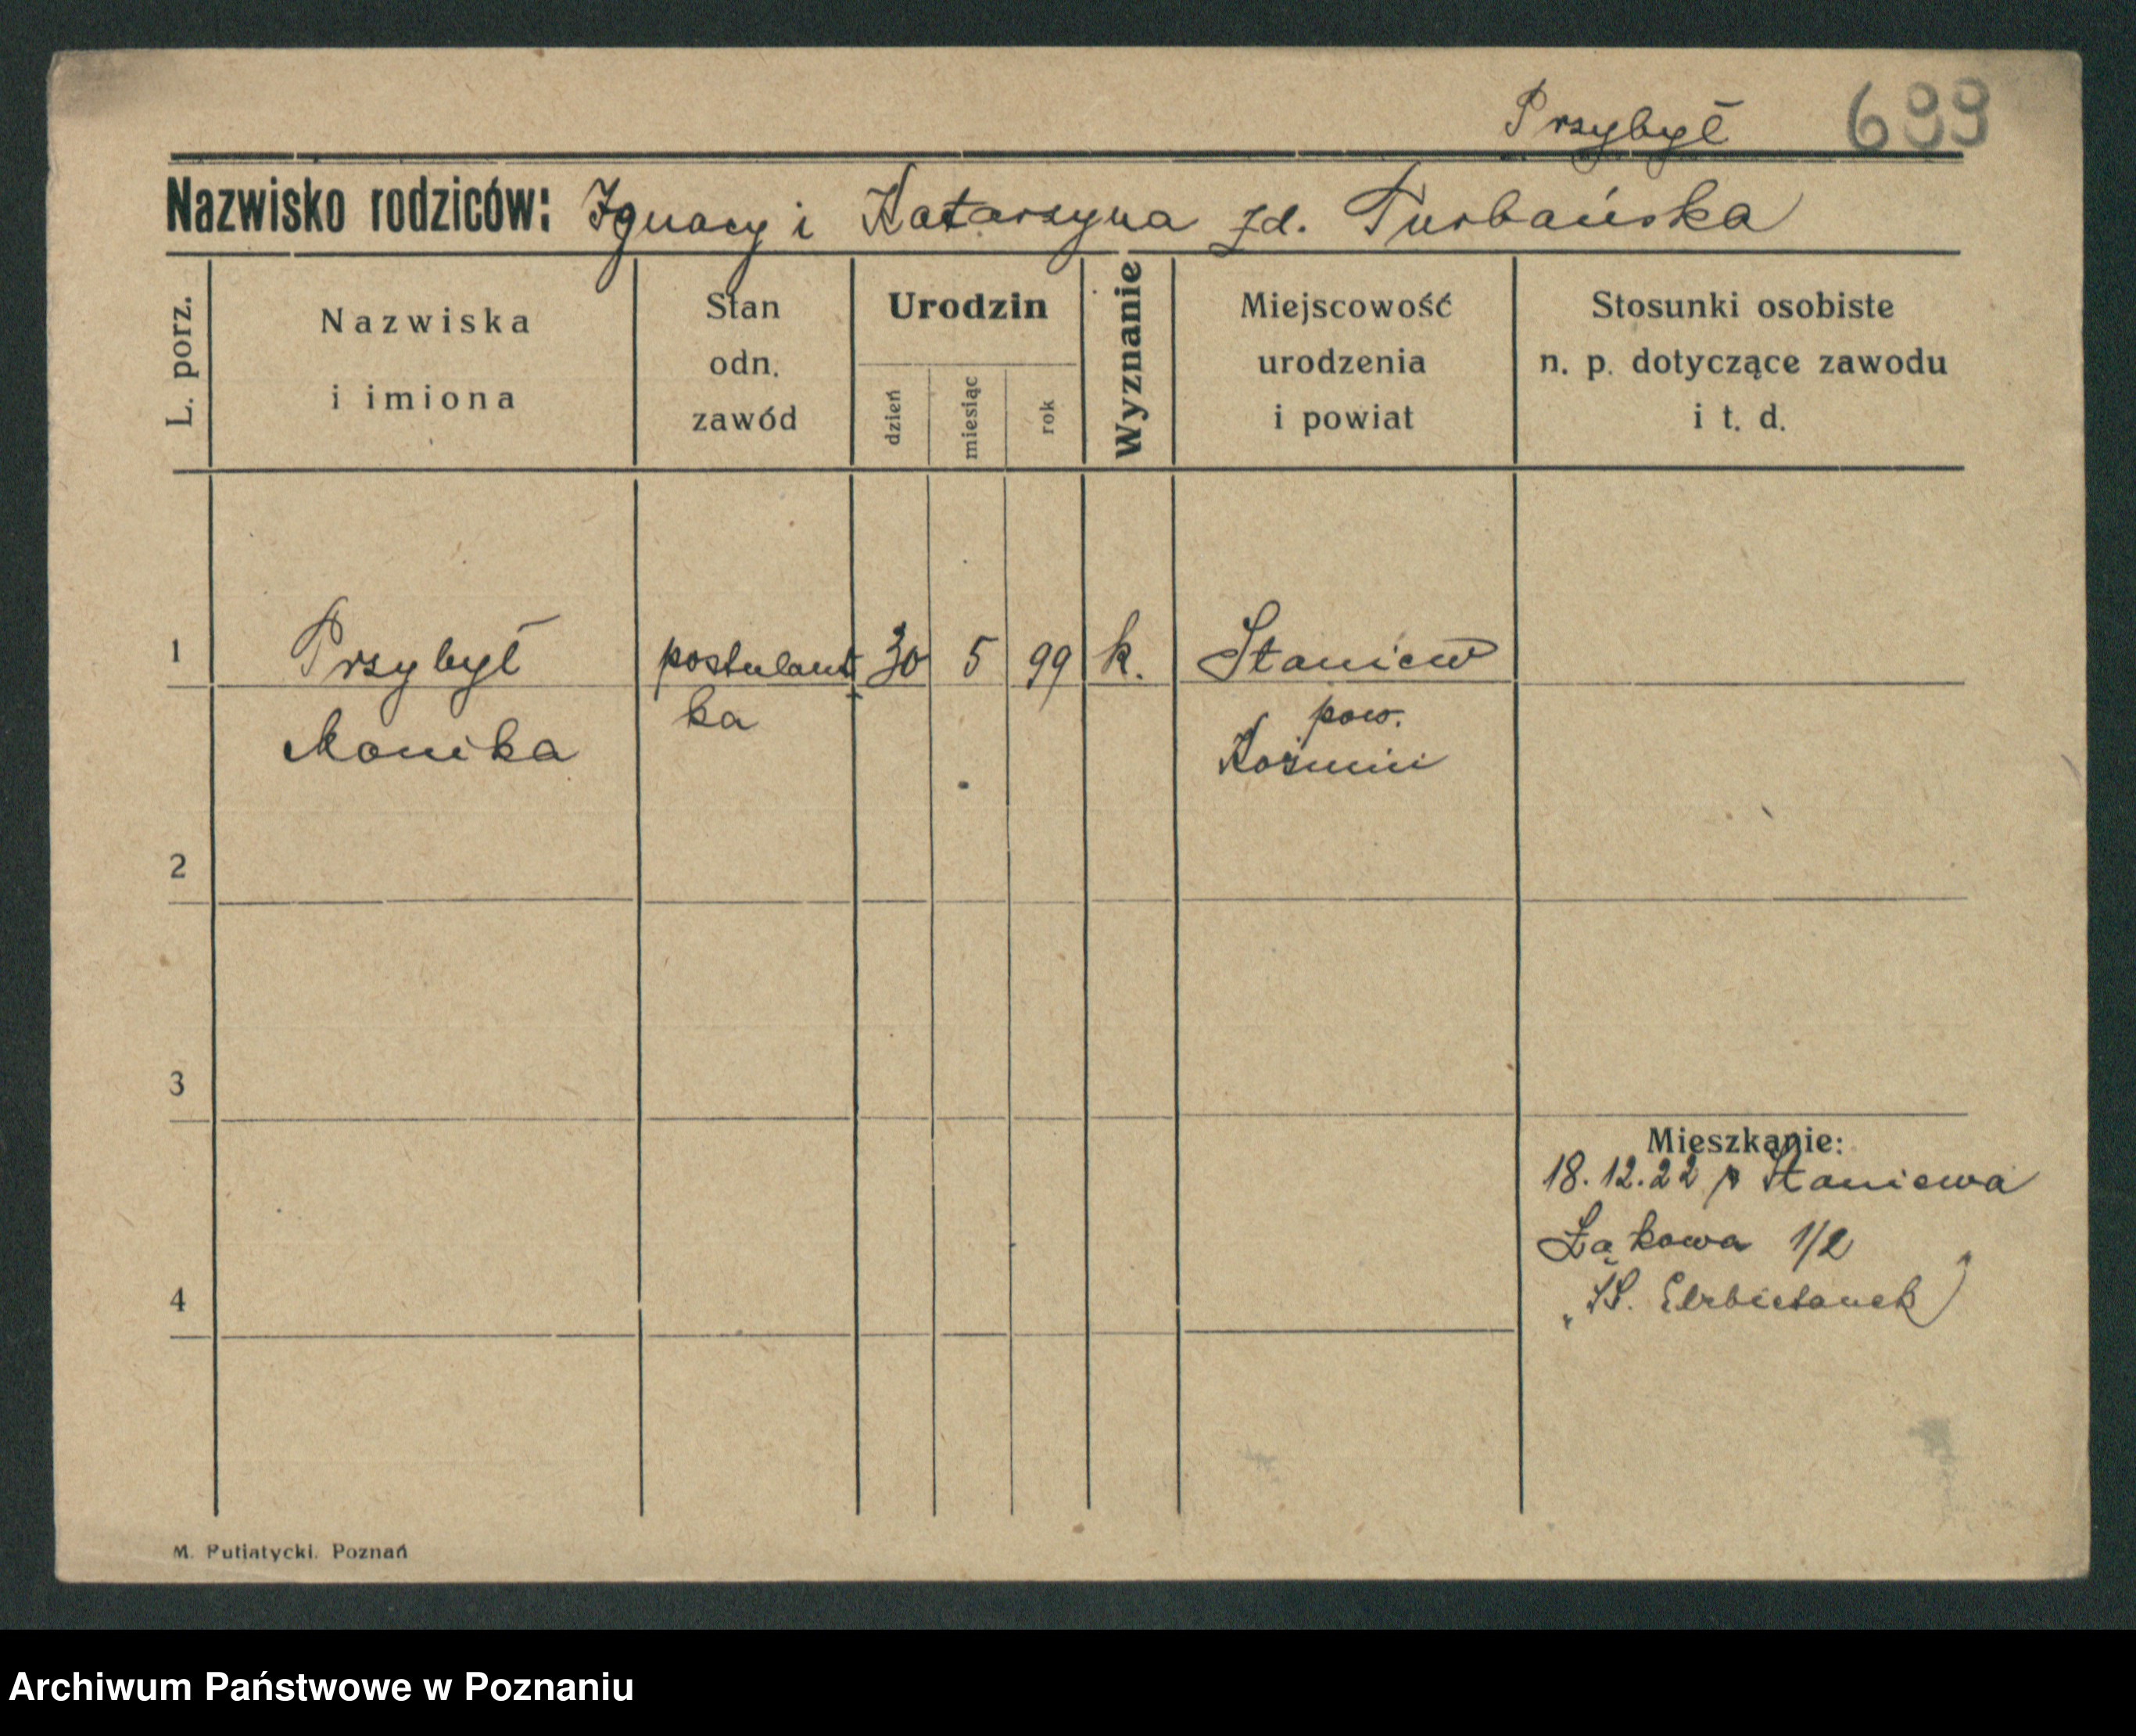 Przybył 699
Nazwisko rodziców: Ignacy i Katarzyna zd. Turbańska
L. porz.
Nazwiska
i imiona
Stan
odn.
zawód
Urodzin
dzień
miesiąc
rok
Wyznanie
Miejscowość
urodzenia
i powiat
Stosunki osobiste
n. p. dotyczące zawodu
i t. d.
1 Przybył postulant 30 5 99 k. Staniew
ka pow.
Monika Koźmin
2
3
Mieszkanie:
18.12.22 Staniewa
Łąkowa 1/2
4 „SS. Elżbietanek"
M. Putiatycki. Poznań
Archiwum Państwowe w Poznaniu